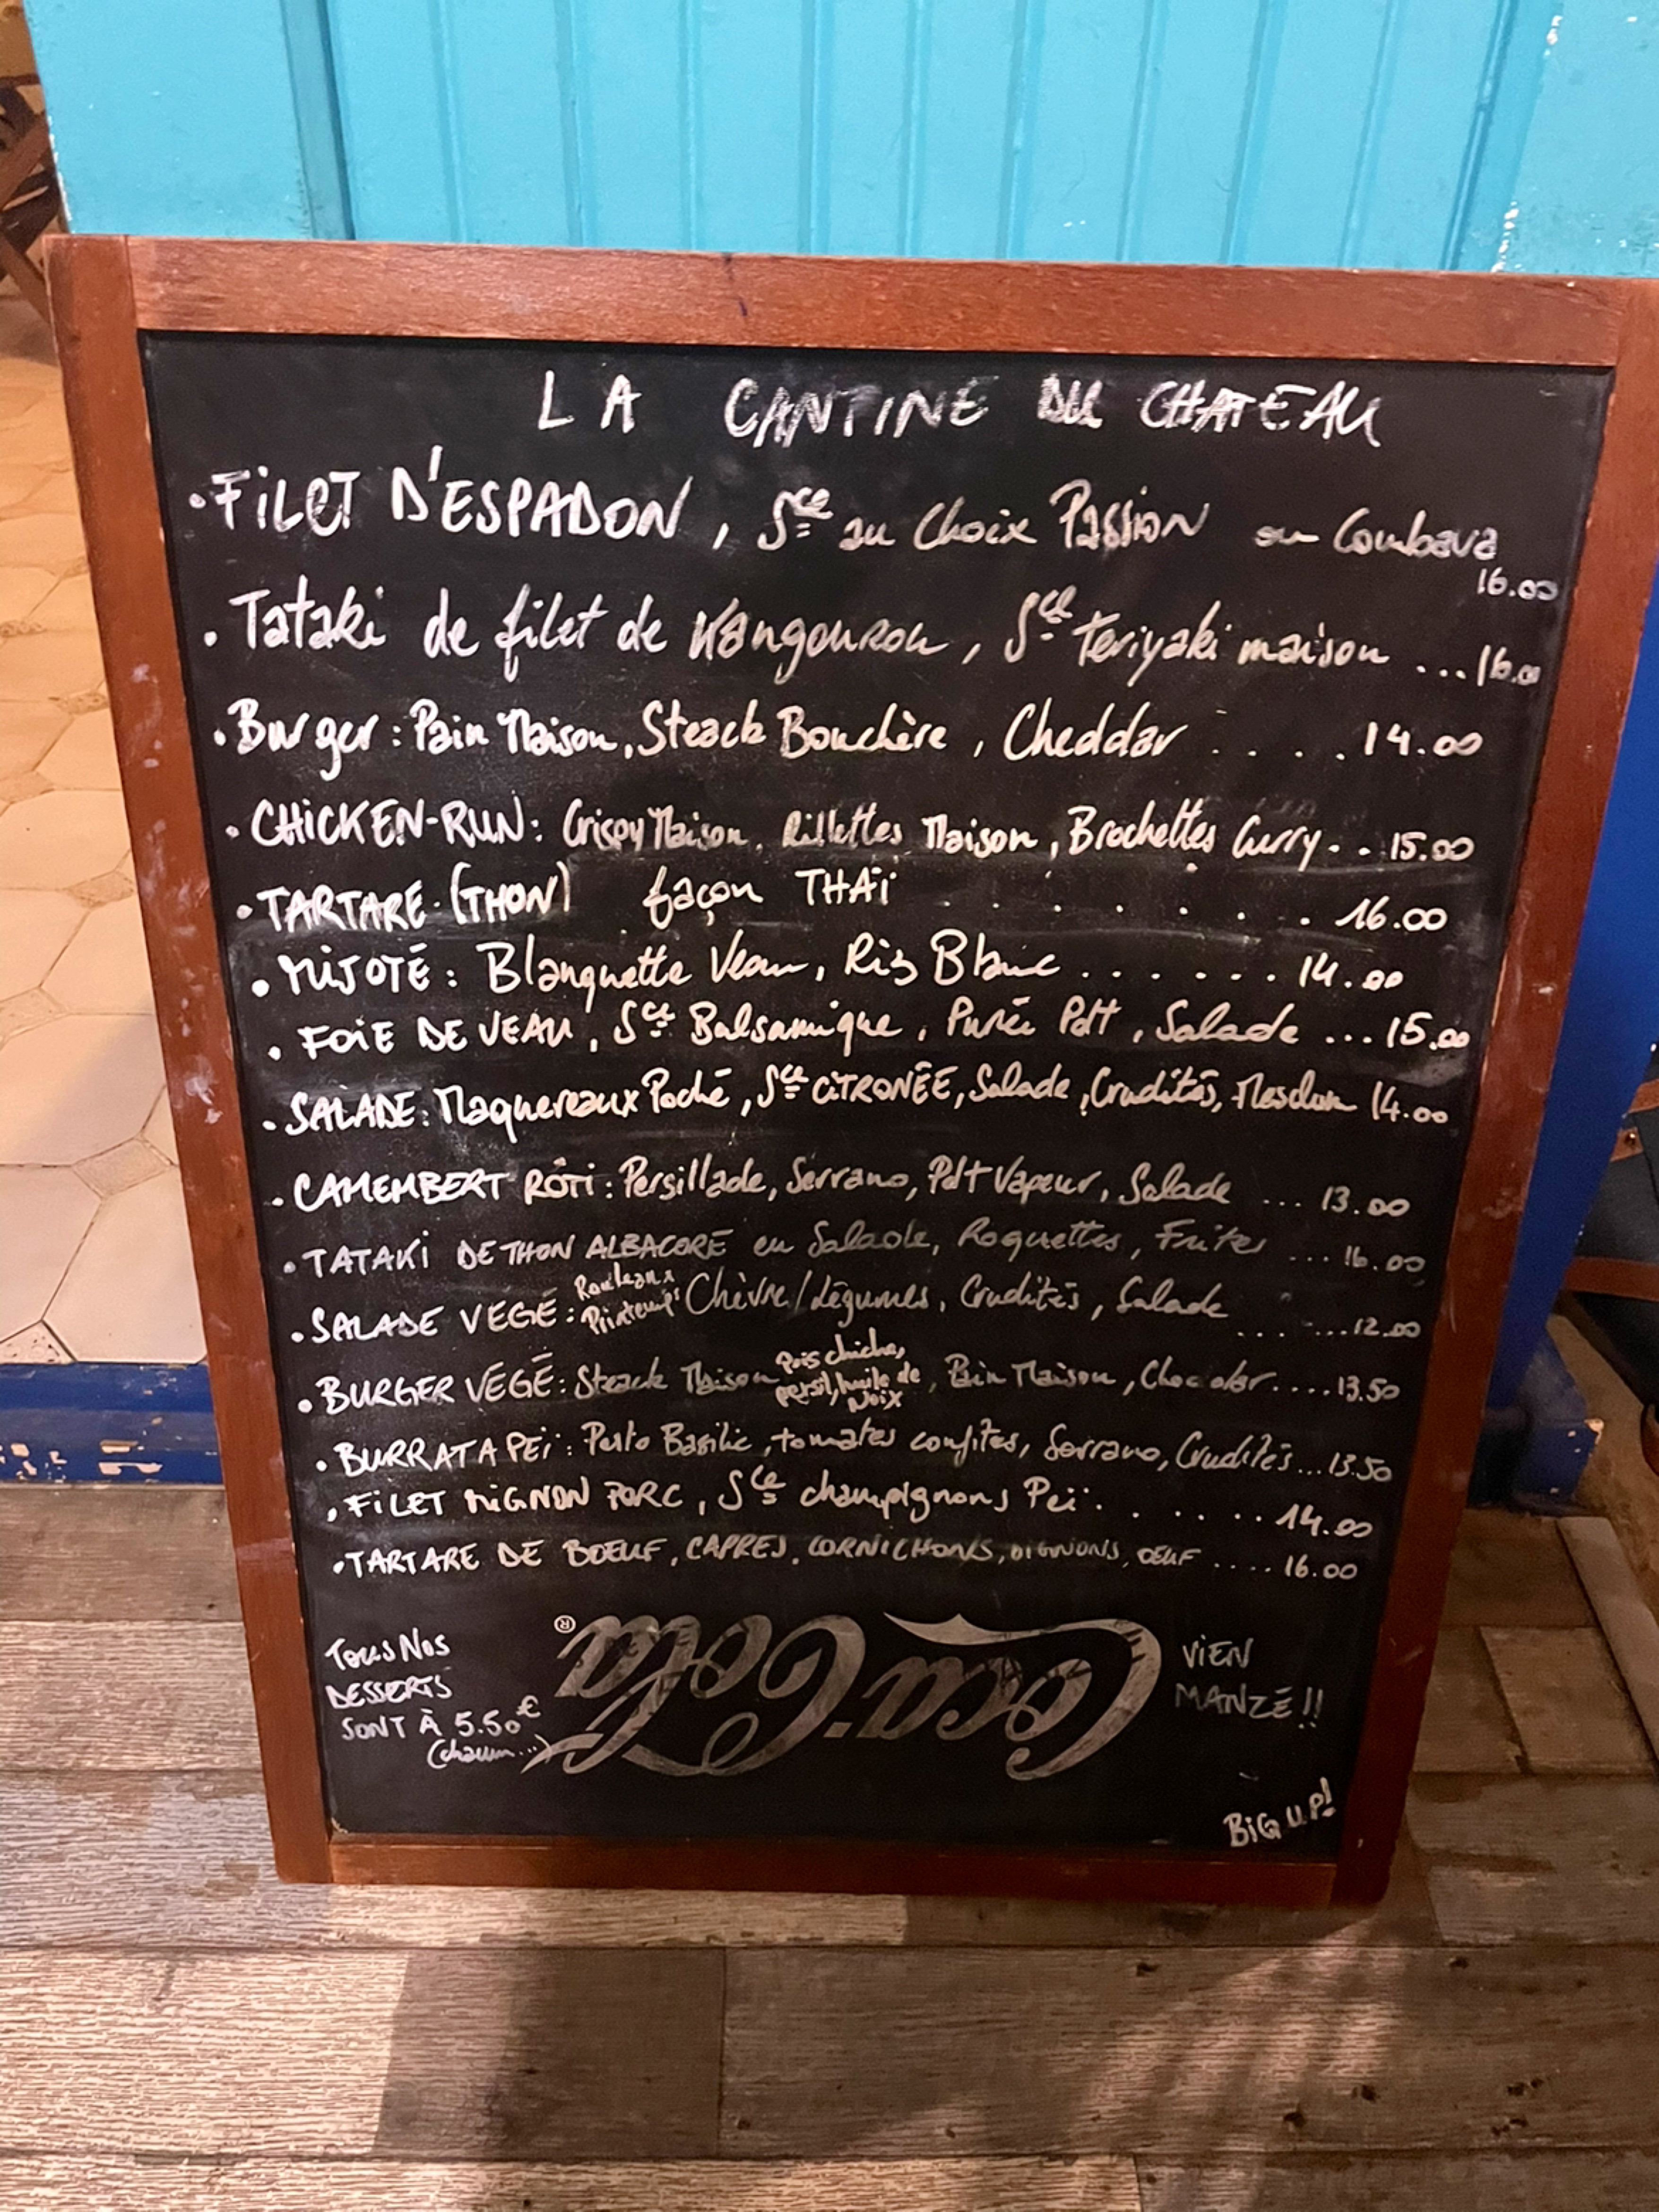 LA CANTINE DU CHATEAU
• FILET D'ESPADON, Sce au Choix Passion ou Combava
16.00
• Tataki de filet de Kangourou, Sce Teriyaki maison ... 16.00
• Burger : Pain Maison, Steack Bouchère, Cheddar . . . . 14.00
• CHICKEN-RUN : Crispy Maison, Rillettes Maison, Brochettes Curry . . 15.00
• TARTARE (THON) façon THAÏ . . . . . . . . 16.00
• MIJOTÉ : Blanquette Veau, Riz Blanc . . . . . . 14.00
• FOIE DE VEAU, Sce Balsamique, Purée Pdt, Salade ... 15.00
• SALADE : Maquereaux Poché, Sce CITRONÉE, Salade, Crudités, Mesclun 14.00
• CAMEMBERT RÔTI : Persillade, Serrano, Pdt Vapeur, Salade ... 13.00
• TATAKI DE THON ALBACORE en Salade, Roquettes, Frites ... 16.00
• SALADE VEGÉ : Rouleaux Printemps Chèvre/Légumes, Crudités, Salade ...... 12.00
• BURGER VEGÉ : Steack Maison pois chiches, persil, huile de Noix, Pain Maison, .... 13.50
• BURRATA PEÏ : Pesto Basilic, tomates confites, Serrano, Crudités ... 13.50
• FILET MIGNON PORC, Sce champignons Peï . . . . . . 14.00
• TARTARE DE BOEUF, CAPRES, CORNICHONS, OIGNONS, OEUF .... 16.00
TOUS NOS
DESSERTS
SONT À 5.50€
(chacun...)
Coca-Cola®
VIEN
MANZÉ !!
BIG UP!